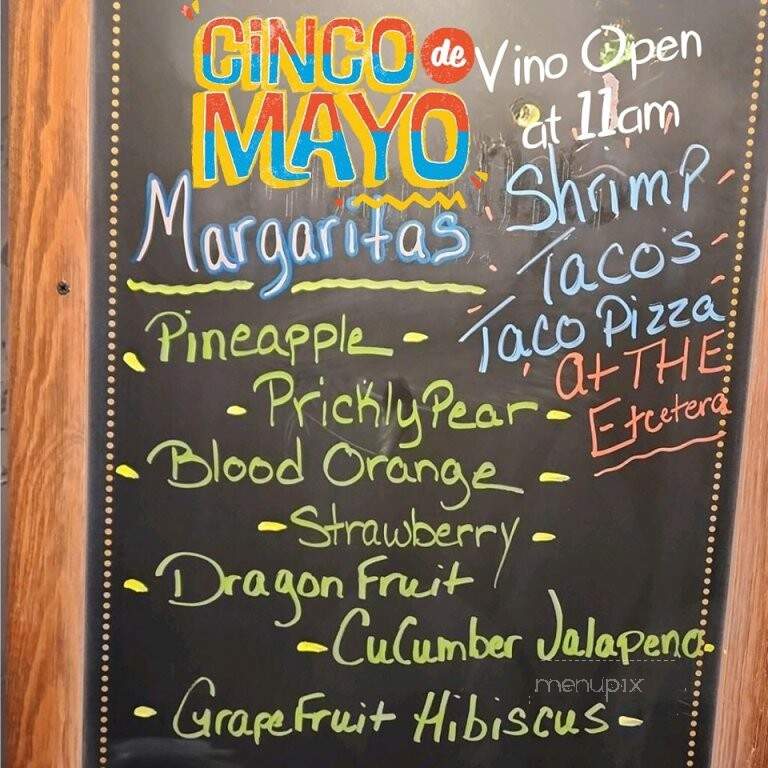 CiNCO de
MAYO
Vino Open
at 11am
Margaritas
Shrimp
Tacos
Taco Pizza
at THE
Etcetera
- Pineapple -
- Prickly Pear -
- Blood Orange -
- Strawberry -
- Dragon Fruit
- CuCumber Jalapeno -
- GrapeFruit Hibiscus -
menupix